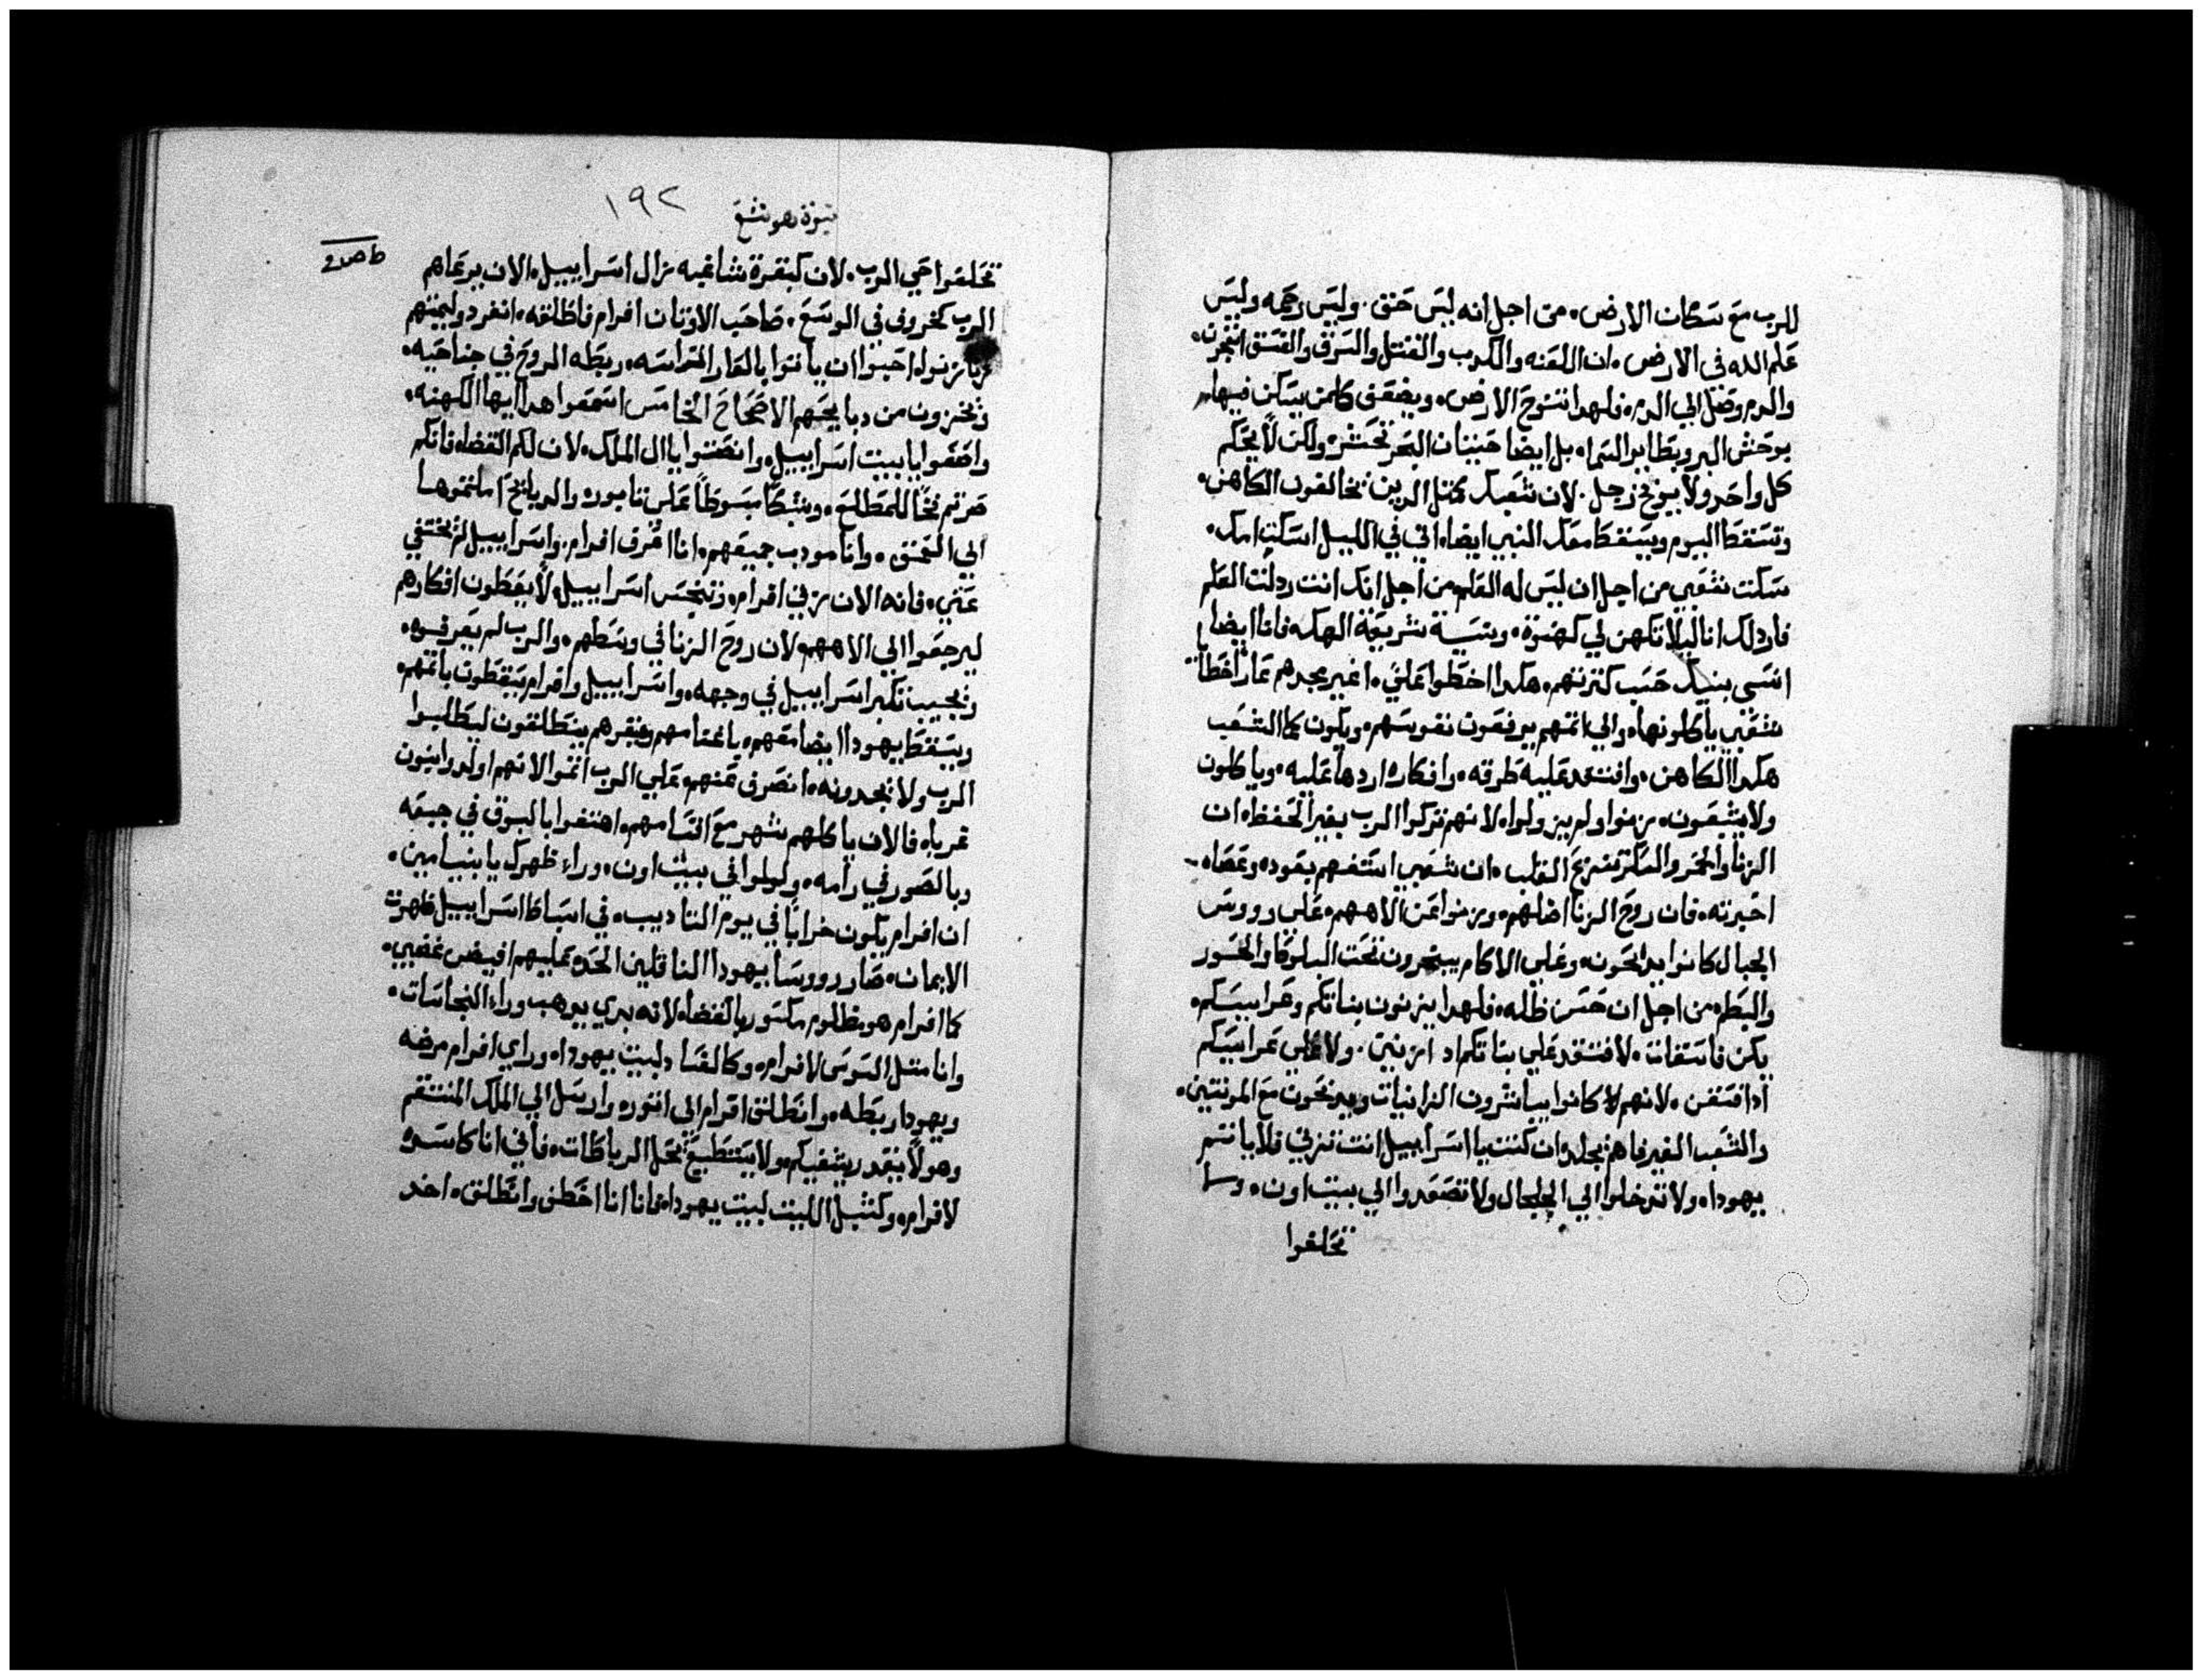 للرب مع سكان الارض. من اجل انه ليس حنق. وليس رحمه وليس
علم الله في الارض. ان اللعنه والكدب والقتل والسرق والفسق انتجرن.
والدم وصل الي الدم. فلهدا تنوح الارض. ويضعف كلمن يسكن فيها.
بوحش البر وبطاير السما. بل ايضا حيتان البحر تحشر. ولكن لا يحكم
كل واحد ولا يوبخ رجل. لان شعبك كمثل الدين يخالفون الكاهن.
وتسقط اليوم ويسقط معك النبي ايضا. اني في الليل اسكت امك.
سكت شعبي من اجل ان ليس له العلم. من اجل انك انت ردلت العلم
فاردلك انا ليلا تكهن لي كهنوة. ونسية شريعة الهك. فانا ايضا
انسي بنيك حسب كترتهم. هكدا اخطوا علي. اغير مجدهم عار اخطاة
شعبي ياكلونها. والي اتمهم يرفعون نفوسهم. ويكون كما الشعب
هكدا الكاهن. وافتقد عليه طرقه. وافكاره اردها عليه. وياكلون
ولا يشبعون. يزنوا ولم يزولوا. لانهم تركوا الرب بغير الحفظ. ان
الزنا والخمر والسكر تنزع القلب. ان شعبي استفهم بعوده وعصاه
اخبرته. فان روح الزنا اضلهم. ويزنوا عن الاههم. علي رووس
الجبال كانوا يدبحون. وعلي الاكام يبخرون تحت البلوط والحور
والبطم. من اجل ان حسن ظله. فلهدا يزنون بناتكم وعرايسكم
يكن فاسقات. لا افتقد علي بناتكم اد ازنين. ولا علي عرايسكم
ادا فسقن. لانهم كانوا يباشرون الزانيات ويدبحون مع المونتين.
والشعب الغير فاهم يجلد. وان كنت يا اسراييل انت تزني فلا ياتم
يهودا. ولا تدخلوا الي الجلجال ولا تصعدوا الي بيت اون. ولا
تحلفوا
نبوة هوشع
١٩٢
تحلفوا حي الرب. لان كبقرة شاغبه زال اسراييل. الان يرعاهم
الرب كخروف في الوسع. صاحب الاوتان افرام فاطلقه. انفرد وليمتهم
زنا زنوا. احبوا ان ياتوا بالعار التراسه. ربطه الروح في جناحيه.
ويخزون من دبايحهم الاصحاح الخامس اسمعوا هدا ايها الكهنه.
واصغوا يا بيت اسراييل. وانصتوا يا ال الملك. لان لكم القضا. فانكم
صرتم فخا للمطلع. وشبكا مبسوطا علي تابور. والدبايح املتموها
الي العمق. وانا مودب جميعهم. انا اعرف افرام. واسراييل لم يختفي
عني. فانه الان زني افرام. وتنجس اسراييل. لا يعطون افكارهم
ليرجعوا الي الاههم. لان روح الزنا في وسطهم. والرب لم يعرفوه.
ويجيب تكبر اسراييل في وجهه. واسراييل وافرام يسقطون باتمهم.
ويسقط يهودا ايضا معهم. باغنامهم وبقرهم ينطلقون ليطلبوا
الرب ولا يجدونه. انصرف عنهم. علي الرب اتموا لانهم اولدوا بنون
غربا. فالان ياكلهم شهر مع اقسامهم. اهتفوا بالبوق في جبعه
وبالصور في رامه. ولولوا في بيت اون. ورا ظهرك يا بنيامين.
ان افرام يكون خرابا في يوم التاديب. في اسباط اسراييل ظهرت
الايمان. صار رووسا يهودا الناقلين الحد. عليهم افيض غضبي.
كما افرام هو مظلوم مكسور بالقضا. لانه بدي يوهب ورا النجاسات.
وانا متل السوس لافرام. وكالفساد لبيت يهودا. وراي افرام مرضه
ويهودا ربطه. وانطلق افرام الي اتور. وارسل الي الملك المنتقم
وهو لا يقدر يشفيكم. ولا يستطيع يحل الرباطات. فاني انا كاسده
لافرام. وكشبل الليت لبيت يهودا. فانا انا اخطف وانطلق. اخد